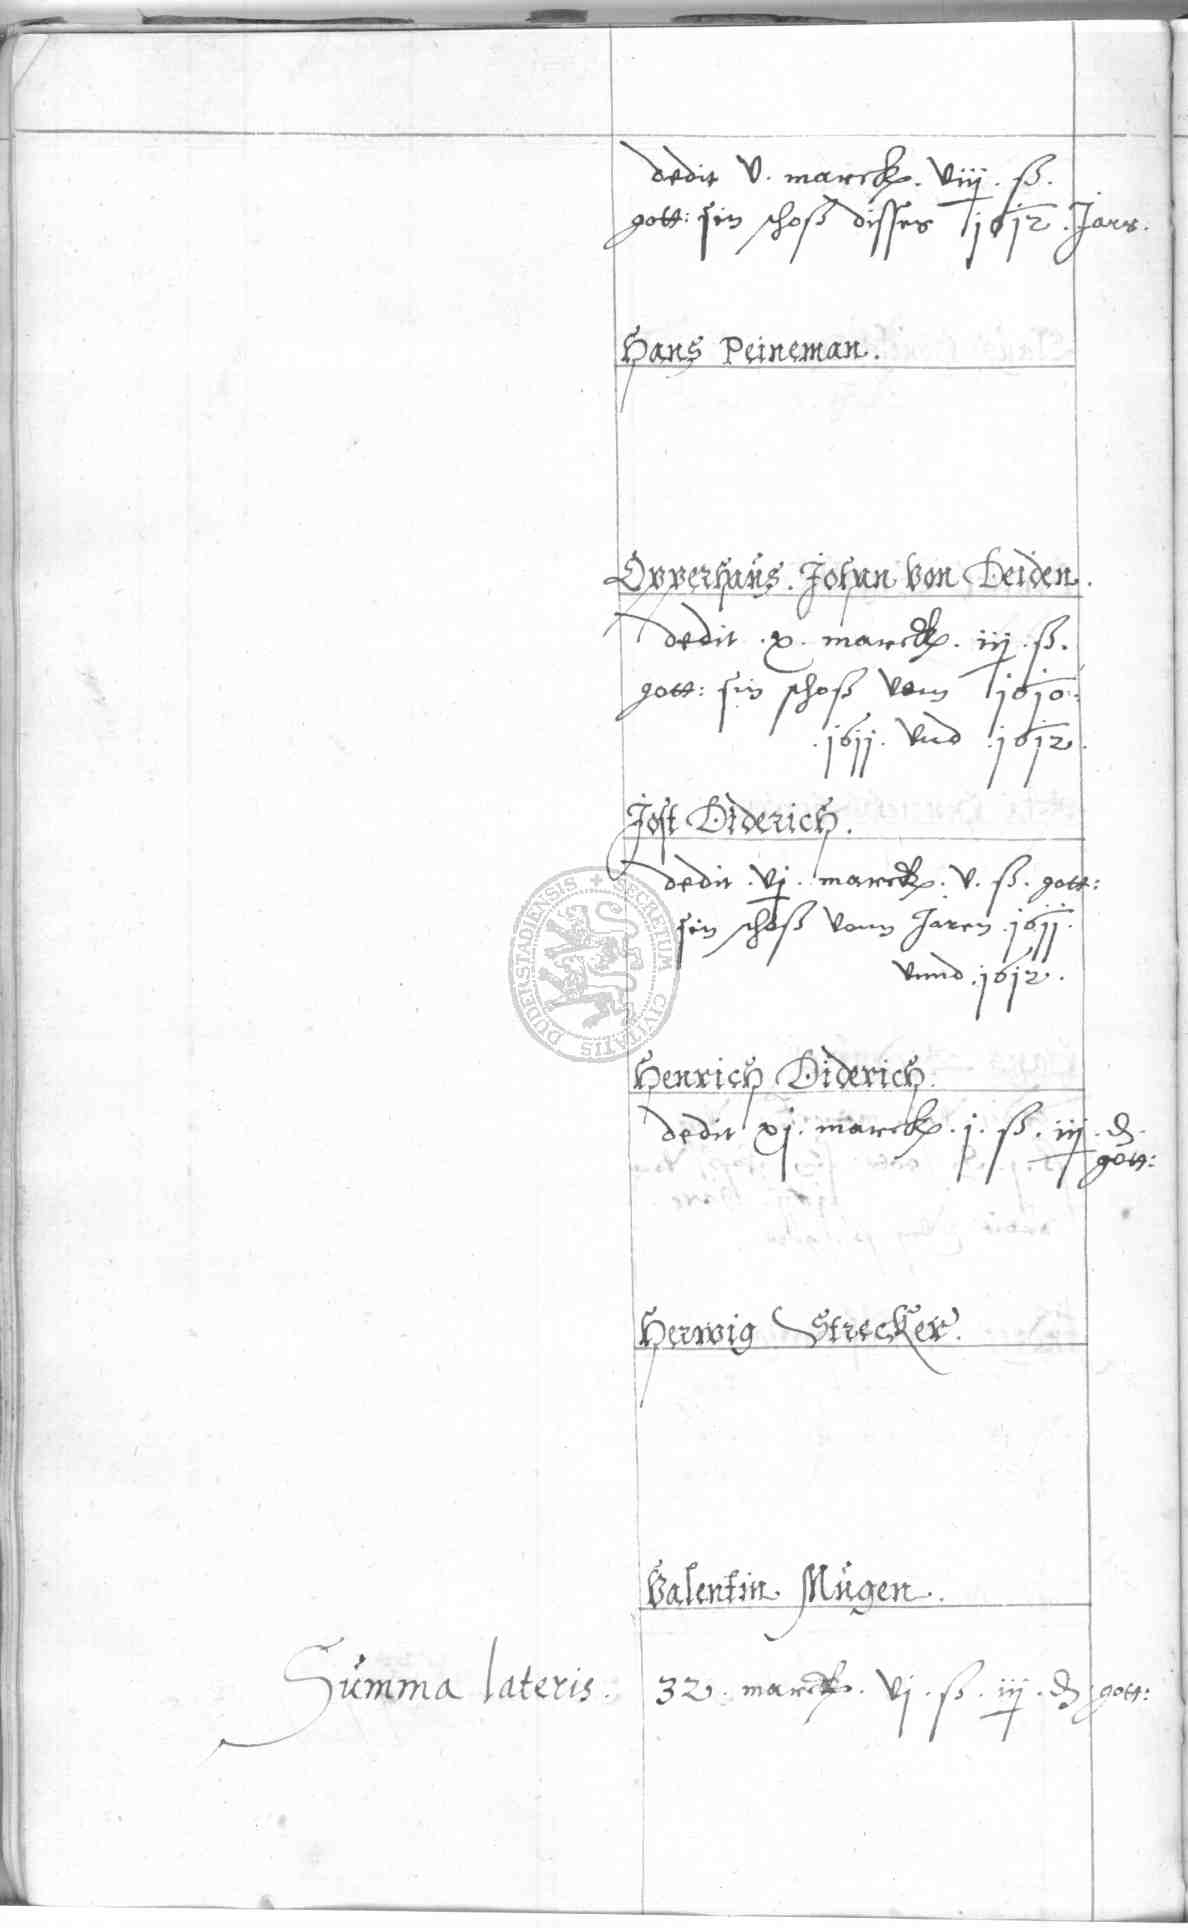 dedit v. marck. viij. ß.
gott: sin schoß disses 1612. Jars.
Hans Peineman.
Opperhaus. Johan von Deiden.
dedit .x. marck. iij. ß.
gott: sin schoß vom 1610.
.1611. vnd .1612.
Jost Diderich.
dedit .vj. marck. v. ß. gott:
sin schoß vonn Jaren .1611.
vnnd .1612.
Henrich Diderich.
dedit xj. marck. j. ß. iij. ₰.
gott:
Herwig Strecker.
Valentin Mügen.
Summa lateris. 32. marck. vj. ß. iij. ₰ gott:
SECRETUM CIVITATIS DUDERSTADIENSIS